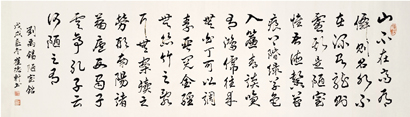 山不在高有
仙則名水不
在深有龍則
靈斯是陋室
惟吾德馨苔
痕上階綠草色
入簾青談笑
有鴻儒往來
无白丁可以調
素琴閱金經
无絲竹之亂
耳无案牘之
勞形南陽諸
葛廬西蜀子
雲亭孔子云
何陋之有
劉禹錫陋室銘
戊戌